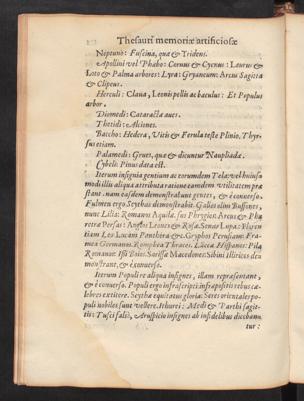 Thesauri memoriæ artificiosæ
Neptuno: Fuscina, quæ & Tridens.
Apollini vel Phœbo: Coruus & Cycnus: Laurus &
Loto & Palma arbores: Lyra: Gryaneum: Arcus Sagitta
& Clipeus.
Herculi: Claua, Leonis pellis ac baculus: Et Populus
arbor.
Diomedi: Cataractæ aues.
Thetidi: Alciones.
Baccho: Hedera, Vitis & Ferula teste Plinio, Thyr-
sus etiam.
Palamedi: Grues, quæ & dicuntur Naupliadæ.
Cybeli: Pinus data est.
Iterum insignia gentium ac eorumdem Tela vel huius-
modi illis aliqua attributa ratione eamdem vtilitatem præ
stant, nam easdem demonstrabunt gentes, & è conuerso.
Fulmen ergo Scythas demonstrabit. Gallos olim Buffones,
nunc Lilia: Romanos Aquila, sus Phrygios: Arcus & Pha
retra Persas: Anglos Leones & Rosa. Senas Lupa:
etiam Leo Lucam Panthera &c. Gryphes Perusiam. Fra-
mea Germanos. Romphea Thraces. Hispanos: Pila
Romanos: Boios. Sarissa Macedones: Sibini Illiricos de-
monstrant, & è conuerso.
Iterum Populi re aliqua insignes, illam repræsentant,
& è conuerso. Populi ergo infrascripti infrapositis rebus cæ-
lebres extitere. Scythæ equitatus gloria: Seres orientales po-
puli nobiles sunt vellere. Ithurei: Medi & Parthi sagit-
tis: Tusci falsò, Aruspicio insignes ab infidelibus dicebantur
tur: